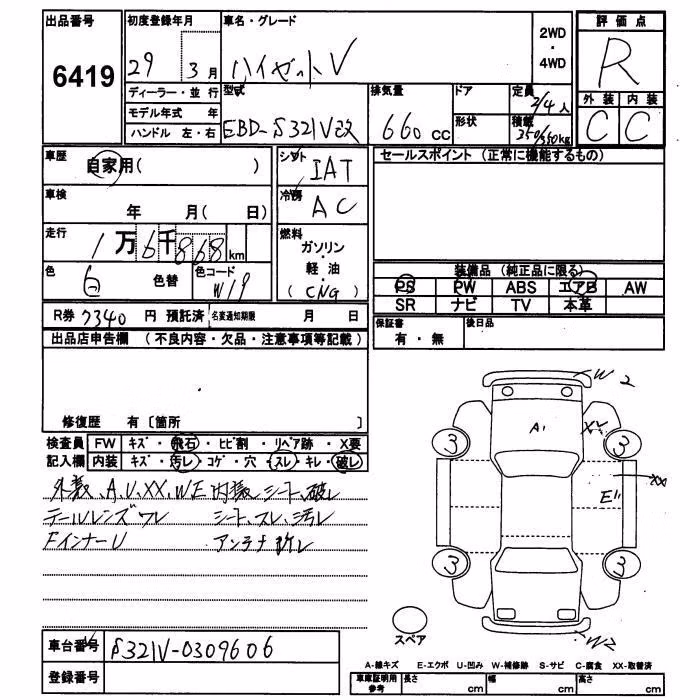 出品番号 6419
初度登録年月 29 3月
ディーラー・並行
モデル年式 年
ハンドル 左・右
車名・グレード ハイゼットV
2WD・4WD
型式 EBD-S321V改
排気量 660 CC
ドア 形状
定員 2/4 人
積載 350/350kg
評価点 R
外装 内装
C C
車歴 自家用( )
車検 年 月( 日)
走行 1万6千868km
色 白 色替
色コード W19
シフト IAT
冷房 AC
燃料 ガソリン・軽油(CNG)
R券 7340 円 預託済 名変通知期限 月 日
セールスポイント(正常に機能するもの)
装備品(純正品に限る)
PS PW ABS エアB AW
SR ナビ TV 本革
保証書 有・無
後日品
出品店申告欄 (不良内容・欠品・注意事項等記載)
修復歴 有〔箇所 〕
検査員 FW キズ・飛石・ヒビ割・リペア跡・X要
記入欄 内装 キズ・汚レ・コゲ・穴・スレ・キレ・破レ
外装、A,U,XX,W,E 内装 シート、破レ
テールレンズワレ シート、スレ、汚レ
FインナーU アンテナ折レ
W2
A1
XX
3 3
E"
XX
3 3
W2
スペア
車台番号 S321V-0309606
登録番号
A-線キズ E-エクボ U-凹み W-補修跡 S-サビ C-腐食 XX-取替済
車庫証明用参考 長さ cm 幅 cm 高さ cm